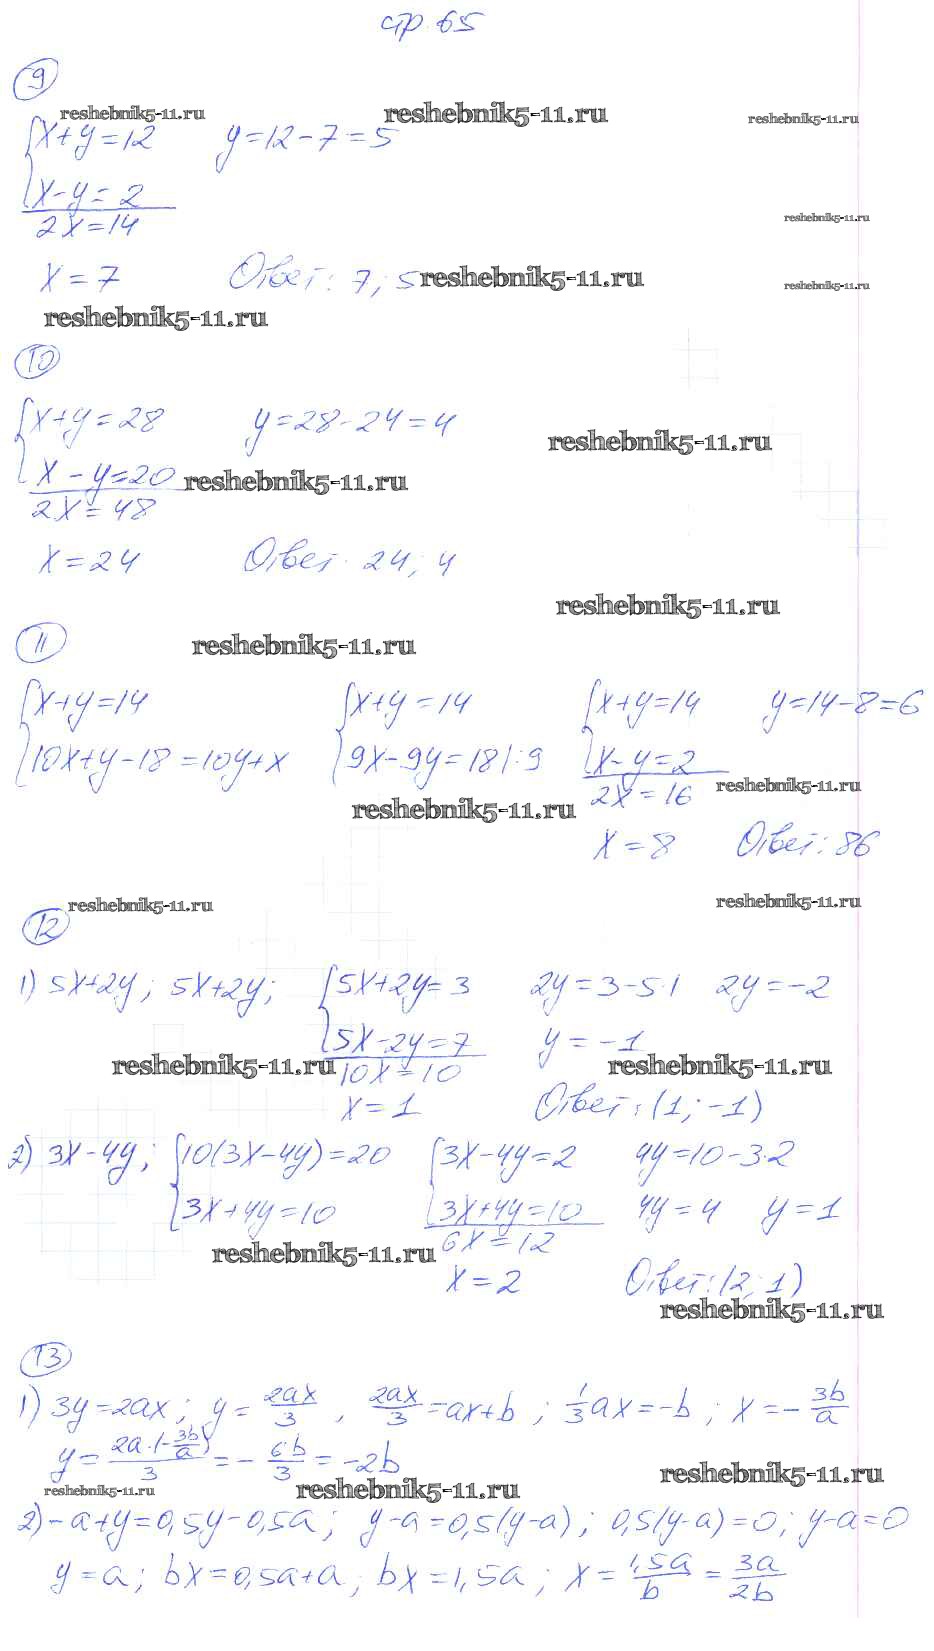 стр. 65
9
reshebnik5-11.ru reshebnik5-11.ru reshebnik5-11.ru
x+y=12 y=12-7=5
x-y=2
2x=14
reshebnik5-11.ru
x=7 Ответ: 7; 5 reshebnik5-11.ru reshebnik5-11.ru
reshebnik5-11.ru
10
x+y=28 y=28-24=4
reshebnik5-11.ru
x-y=20 reshebnik5-11.ru
2x=48
x=24 Ответ: 24; 4
reshebnik5-11.ru
11 reshebnik5-11.ru
x+y=14 x+y=14 x+y=14 y=14-8=6
10x+y-18=10y+x 9x-9y=18|:9 x-y=2
2x=16 reshebnik5-11.ru
reshebnik5-11.ru
x=8 Ответ: 86
reshebnik5-11.ru reshebnik5-11.ru
12
1) 5x+2y; 5x+2y; 5x+2y=3 2y=3-5·1 2y=-2
5x-2y=7 y=-1
reshebnik5-11.ru 10x=10 reshebnik5-11.ru
x=1 Ответ: (1; -1)
2) 3x-4y; 10(3x-4y)=20 3x-4y=2 4y=10-3·2
3x+4y=10 3x+4y=10 4y=4 y=1
reshebnik5-11.ru 6x=12
x=2 Ответ: (2; 1)
reshebnik5-11.ru
13
1) 3y=2ax; y=2ax/3, 2ax/3=ax+b; 1/3ax=-b; x=-3b/a
y=2a·(-3b/a)/3=-6b/3=-2b
reshebnik5-11.ru reshebnik5-11.ru reshebnik5-11.ru
2) -a+y=0,5y-0,5a; y-a=0,5(y-a); 0,5(y-a)=0; y-a=0
y=a; bx=0,5a+a; bx=1,5a; x=1,5a/b=3a/2b